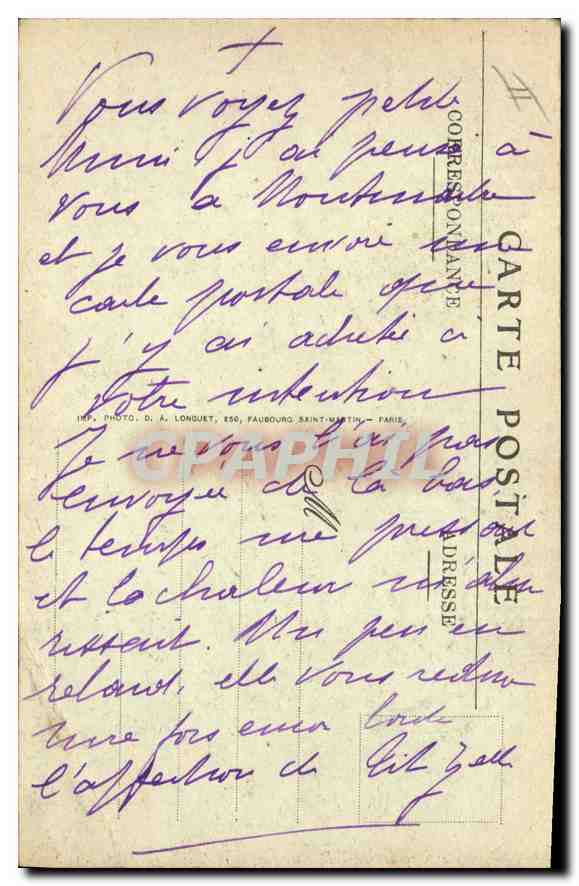 Vous voyez petite
Mimi j'ai pensé à
vous à Montmartre
et je vous envoie une
carte postale que
j'y ai achetée à
votre intention
IMP. PHOTO. D. A. LONGUET, 250, FAUBOURG SAINT-MARTIN — PARIS
Je ne vous l'ai pas
envoyée de là bas
le temps me pressait
et la chaleur m'ahu
rissait. Un peu en
retard, elle vous redira
une fois encore toute
l'affection de
CARTE POSTALE
CORRESPONDANCE
ADRESSE
CPAPHIL